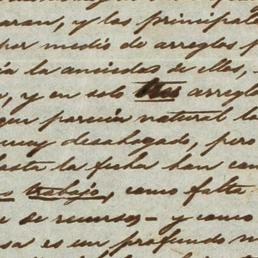 aran, y las principales
por medio de arreglos p
ia la anuidos de ellos,
, y en solo tres arregla
que parecia natural la
muy desahogado, pero
hasta la fecha han com
s trabajos, como falta
e de recursos - y como
sa es un profundo m